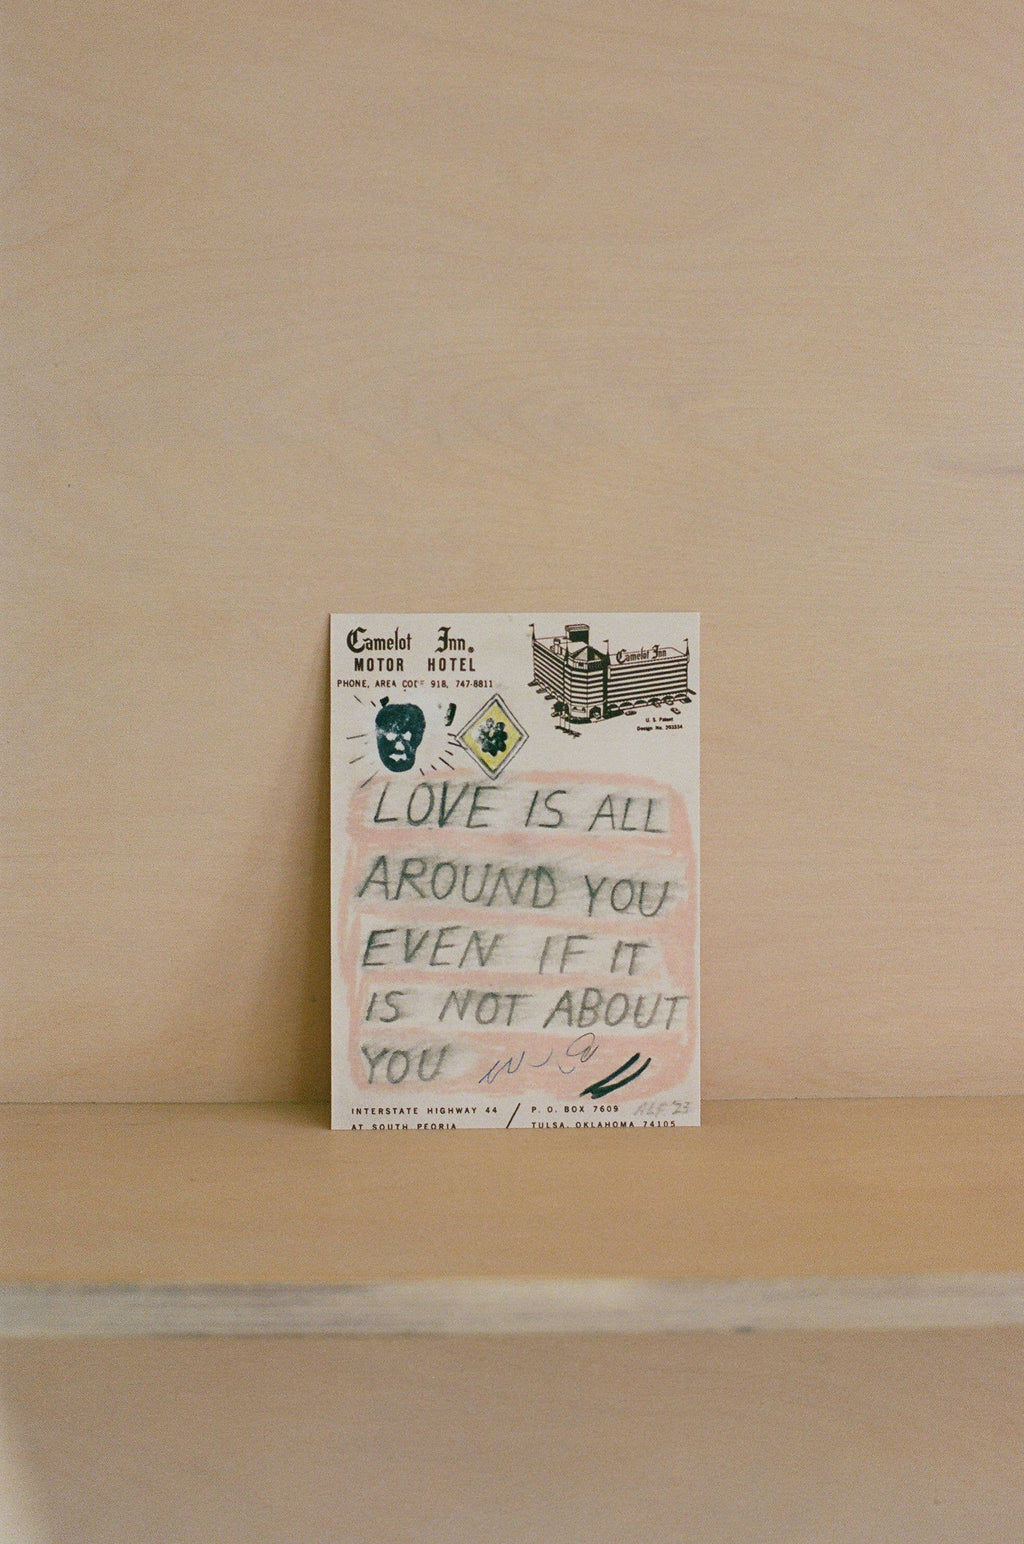 Camelot Inn.
MOTOR HOTEL
PHONE, AREA CODE 918, 747-8811
Camelot Inn
U. S. Patent
Design No. 203334
LOVE IS ALL
AROUND YOU
EVEN IF IT
IS NOT ABOUT
YOU
INTERSTATE HIGHWAY 44 / P. O. BOX 7609
AT SOUTH PEORIA TULSA, OKLAHOMA 74105
ALF '23